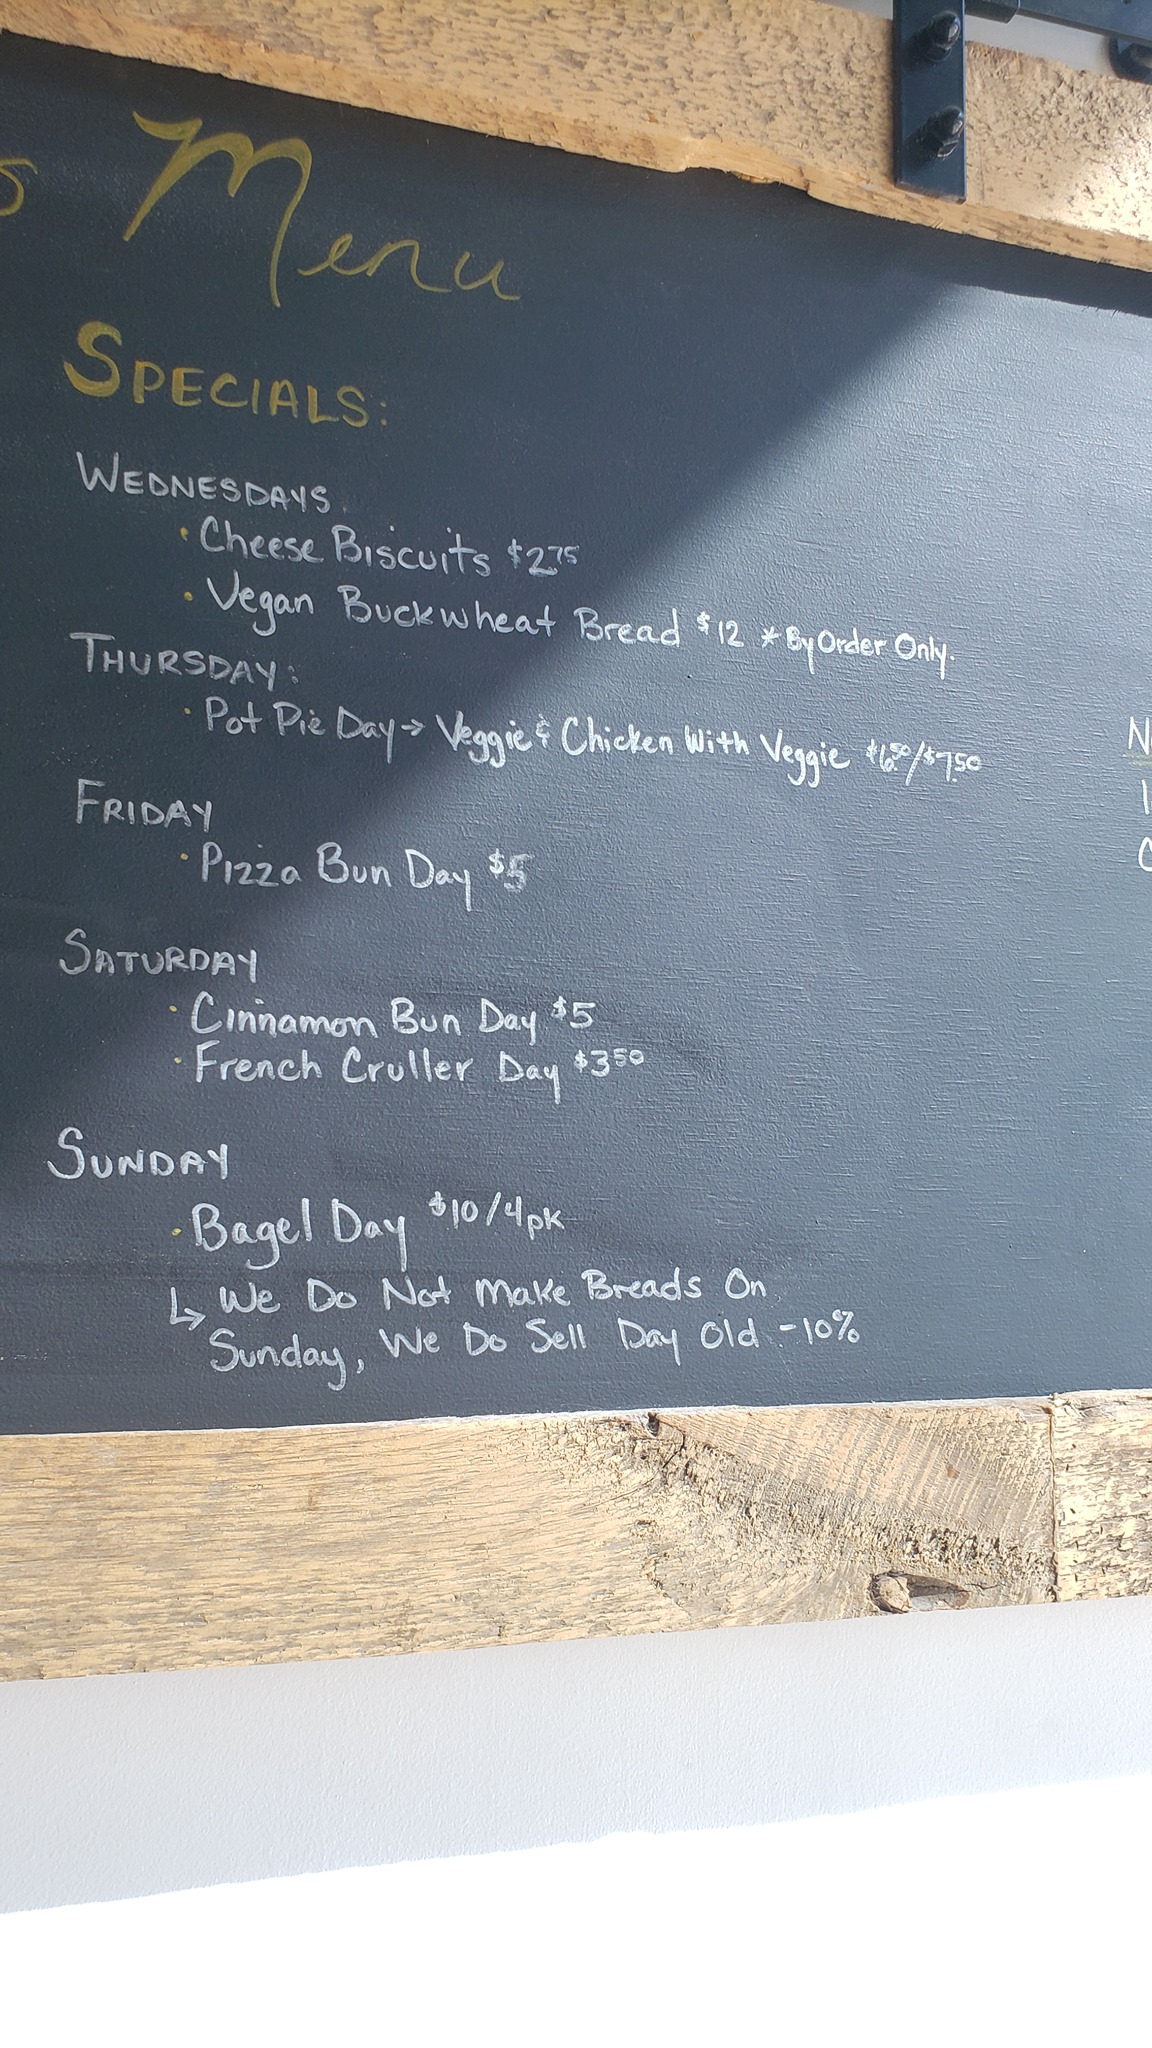 s Menu
SPECIALS:
WEDNESDAYS.
• Cheese Biscuits $2.75
• Vegan Buckwheat Bread $12 * By Order Only.
THURSDAY:
• Pot Pie Day → Veggie & Chicken With Veggie $6.50/$7.50
FRIDAY
• Pizza Bun Day $5
SATURDAY
• Cinnamon Bun Day $5
• French Cruller Day $3.50
SUNDAY
• Bagel Day $10/4pk
↳ We Do Not Make Breads On
Sunday, We Do Sell Day Old -10%